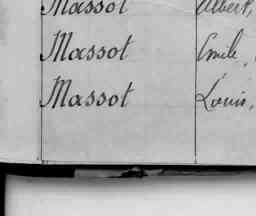 Massot Albert,
Massot Emile,
Massot Louis,